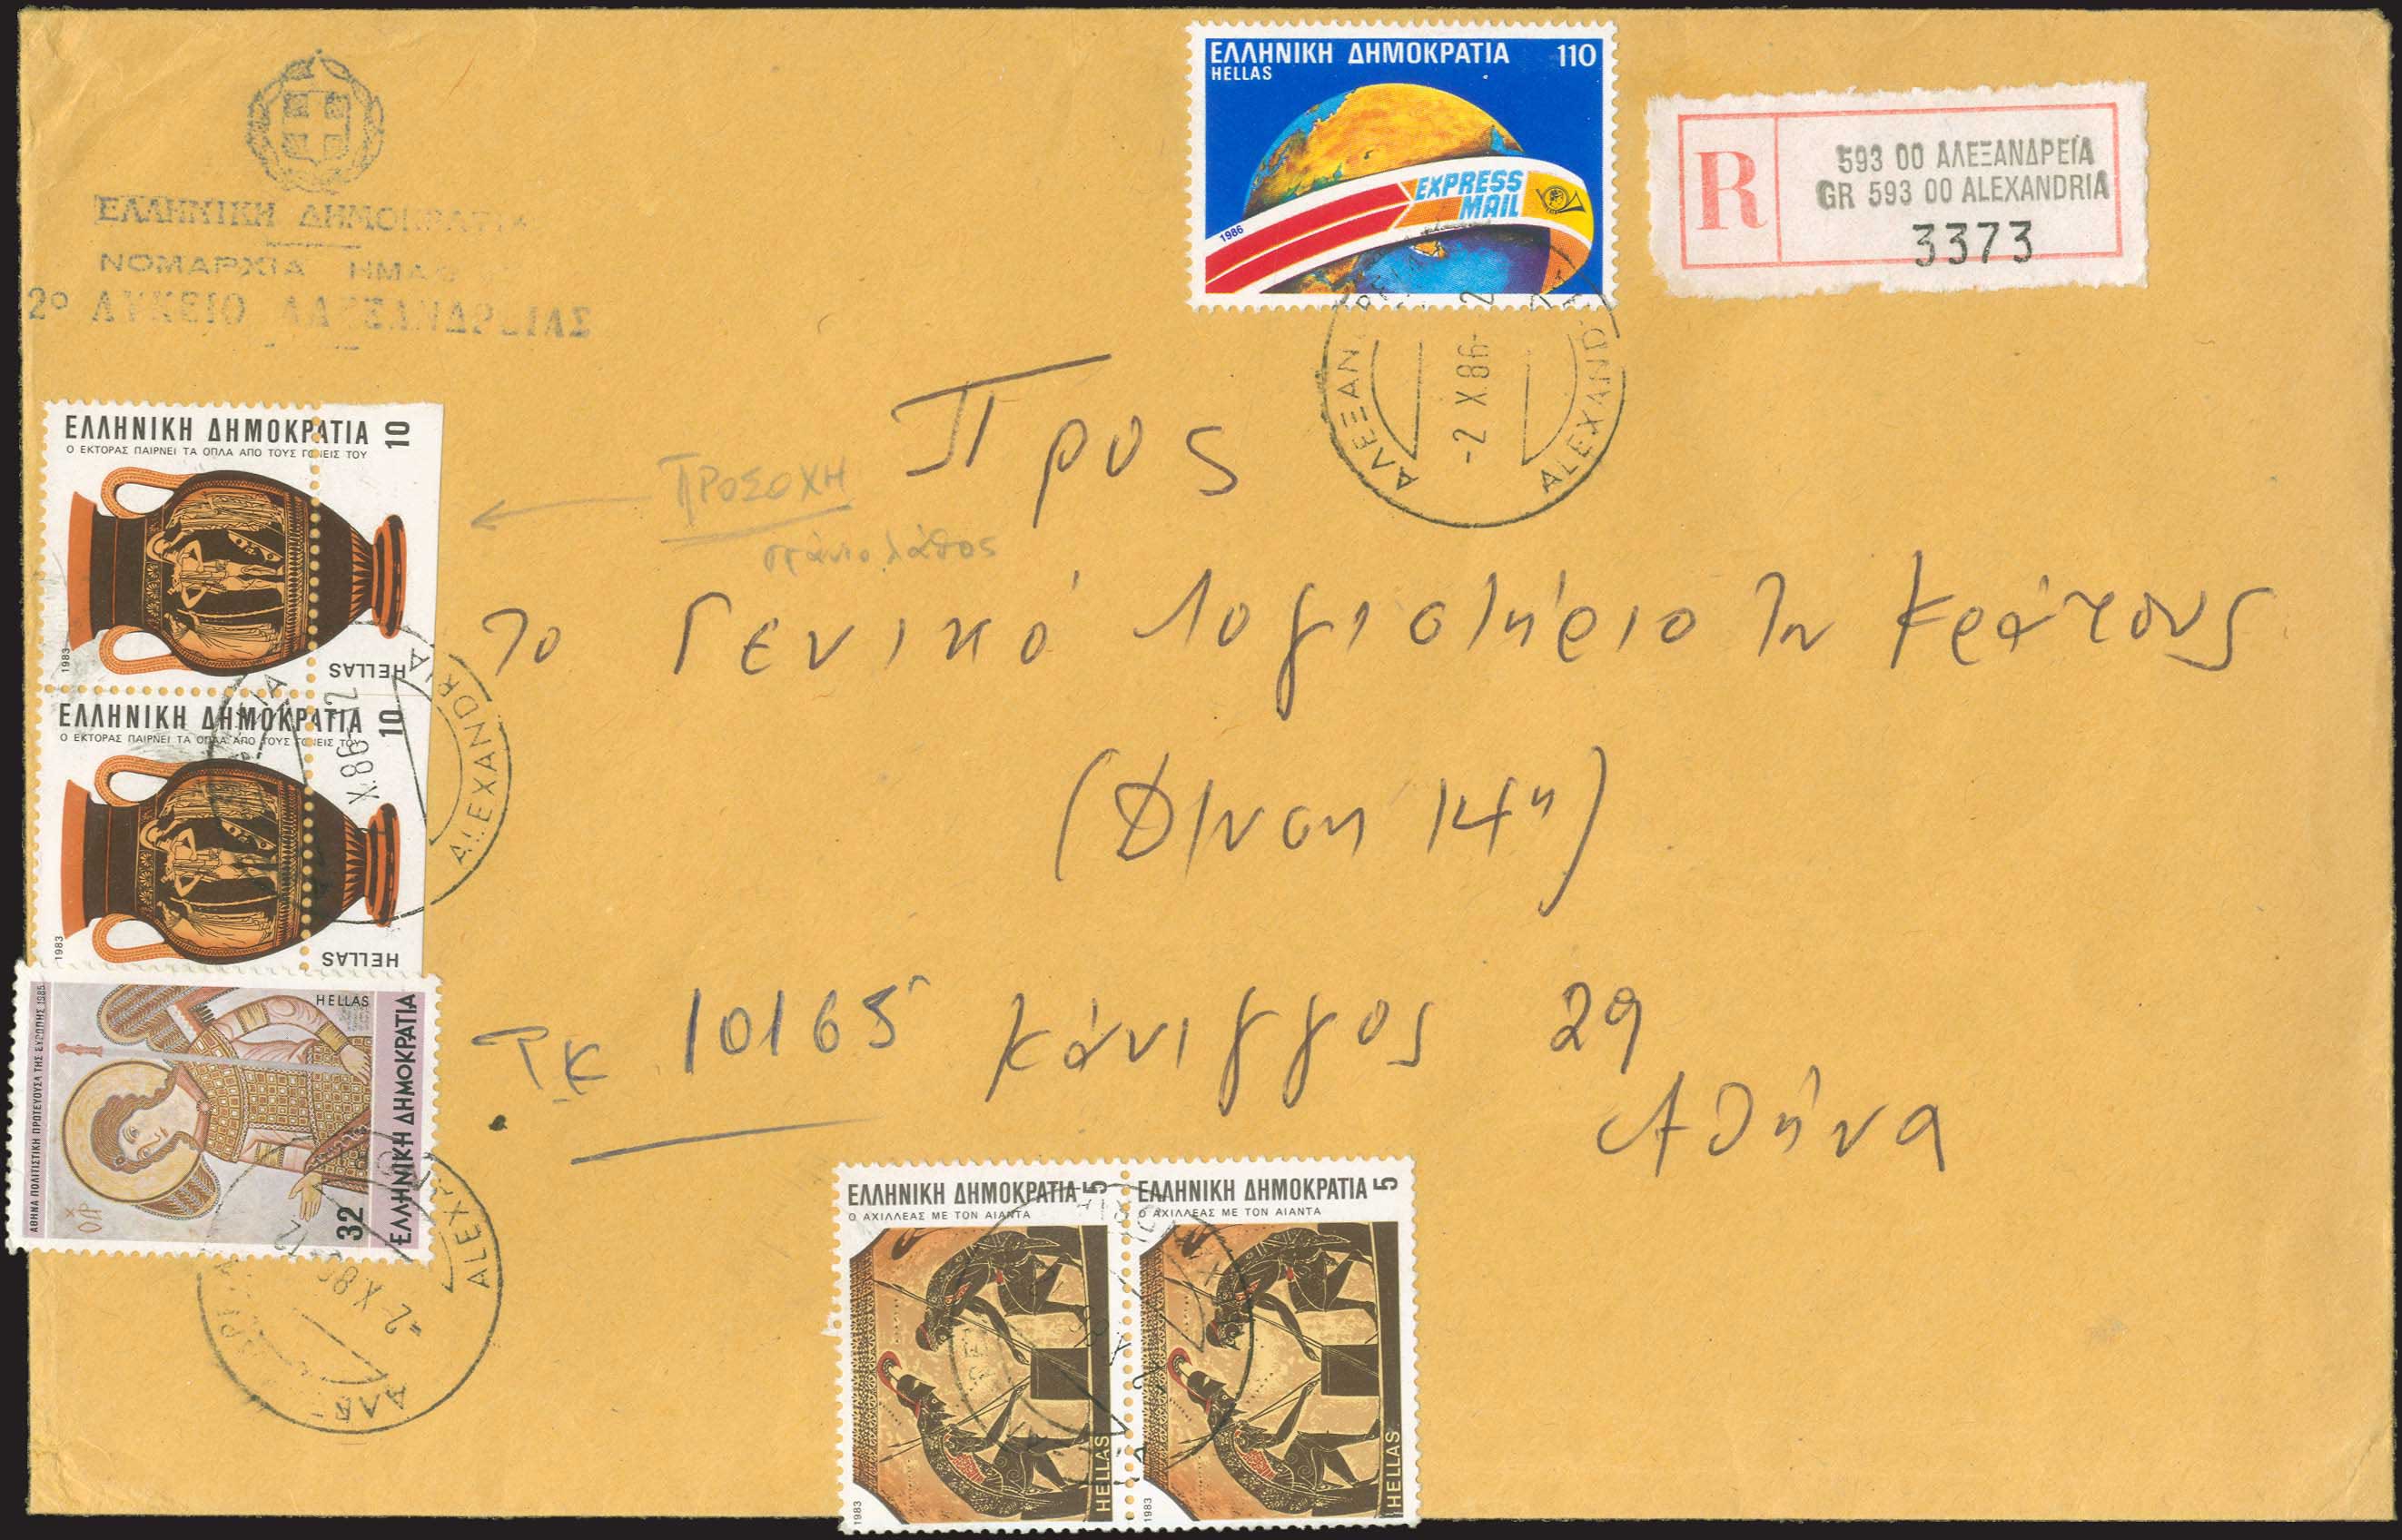 ΕΛΛΗΝΙΚΗ ΔΗΜΟΚΡΑΤΙΑ
ΝΟΜΑΡΧΙΑ
2ο ΛΥΚΕΙΟ ΑΛΕΞΑΝΔΡΕΙΑΣ
ΕΛΛΗΝΙΚΗ ΔΗΜΟΚΡΑΤΙΑ 110
HELLAS
EXPRESS
MAIL
1986
R
593 00 ΑΛΕΞΑΝΔΡΕΙΑ
GR 593 00 ALEXANDRIA
3373
-2 X.86-
ALEXAND
ΕΛΛΗΝΙΚΗ ΔΗΜΟΚΡΑΤΙΑ 10
Ο ΕΚΤΟΡΑΣ ΠΑΙΡΝΕΙ ΤΑ ΟΠΛΑ ΑΠΟ ΤΟΥΣ ΓΟΝΕΙΣ ΤΟΥ
1983
HELLAS
ΠΡΟΣΟΧΗ
σπάνιο λάθος
Προς
Το Γενικό Λογιστήριο του Κράτους
(Δ/νση 14η)
ΤΚ 10165 Κάνιγγος 29
Αθήνα
ALEXANDRIA
X.86
ΕΛΛΗΝΙΚΗ ΔΗΜΟΚΡΑΤΙΑ 10
Ο ΕΚΤΟΡΑΣ ΠΑΙΡΝΕΙ ΤΑ ΟΠΛΑ ΑΠΟ ΤΟΥΣ ΓΟΝΕΙΣ ΤΟΥ
1983
HELLAS
ΑΘΗΝΑ ΠΟΛΙΤΙΣΤΙΚΗ ΠΡΩΤΕΥΟΥΣΑ ΤΗΣ ΕΥΡΩΠΗΣ 1985
HELLAS
32
ΕΛΛΗΝΙΚΗ ΔΗΜΟΚΡΑΤΙΑ
ΕΛΛΗΝΙΚΗ ΔΗΜΟΚΡΑΤΙΑ 5
Ο ΑΧΙΛΛΕΑΣ ΜΕ ΤΟΝ ΑΙΑΝΤΑ
HELLAS
1983
ΕΛΛΗΝΙΚΗ ΔΗΜΟΚΡΑΤΙΑ 5
Ο ΑΧΙΛΛΕΑΣ ΜΕ ΤΟΝ ΑΙΑΝΤΑ
HELLAS
1983